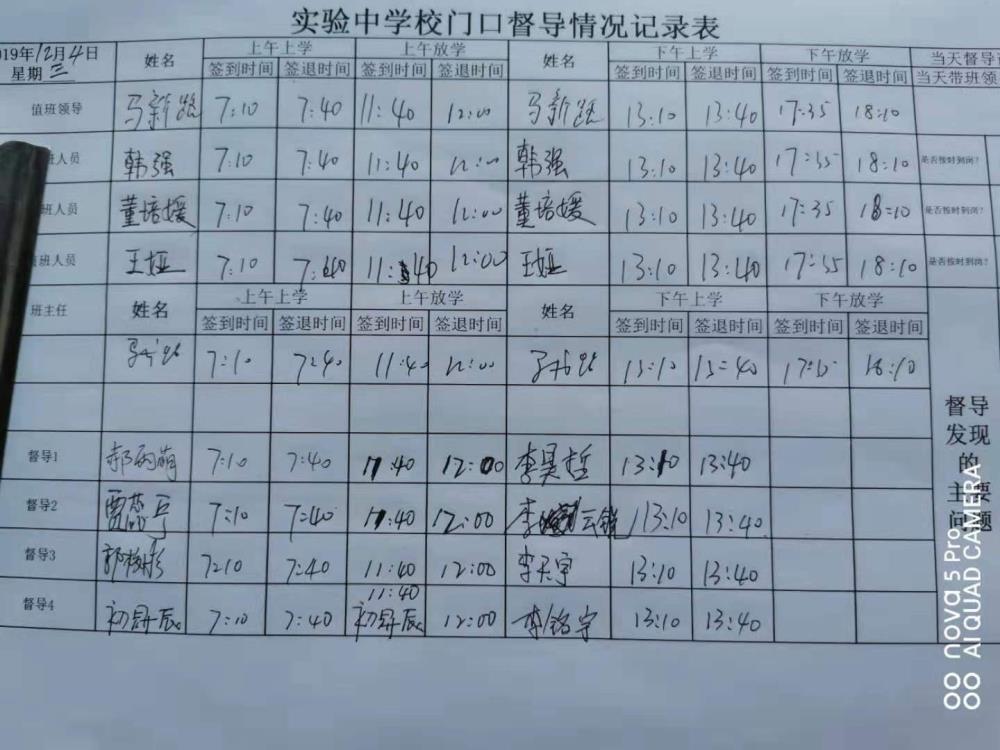 实验中学校门口督导情况记录表
019年12月4日 星期三 姓名 上午上学 上午放学 姓名 下午上学 下午放学 当天督导
签到时间 签退时间 签到时间 签退时间 签到时间 签退时间 签到时间 签退时间 当天带班领
值班领导 马新 7:10 7:40 11:40 12:00 马新 13:10 13:40 17:35 18:10
班人员 韩强 7:10 7:40 11:40 12:00 韩强 13:10 13:40 17:35 18:10 是否按时到岗?
班人员 董培媛 7:10 7:40 11:40 12:00 董培媛 13:10 13:40 17:35 18:10 是否按时到岗?
值班人员 王娅 7:10 7:40 11:40 12:00 王娅 13:10 13:40 17:35 18:10 是否按时到岗?
班主任 姓名 上午上学 上午放学 姓名 下午上学 下午放学
签到时间 签退时间 签到时间 签退时间 签到时间 签退时间 签到时间 签退时间
7:10 7:40 11:40 12:00 13:10 13:40 18:10
督导发现的主要问题
督导1 7:10 7:40 11:40 12:00 李昊哲 13:10 13:40
督导2 7:10 7:40 11:40 12:00 李 13:10 13:40
督导3 7:10 7:40 11:40 12:00 李天宇 13:10 13:40
11:40
督导4 初舜辰 7:10 7:40 初舜辰 12:00 李铭宇 13:10 13:40
nova 5 Pro
AI QUAD CAMERA